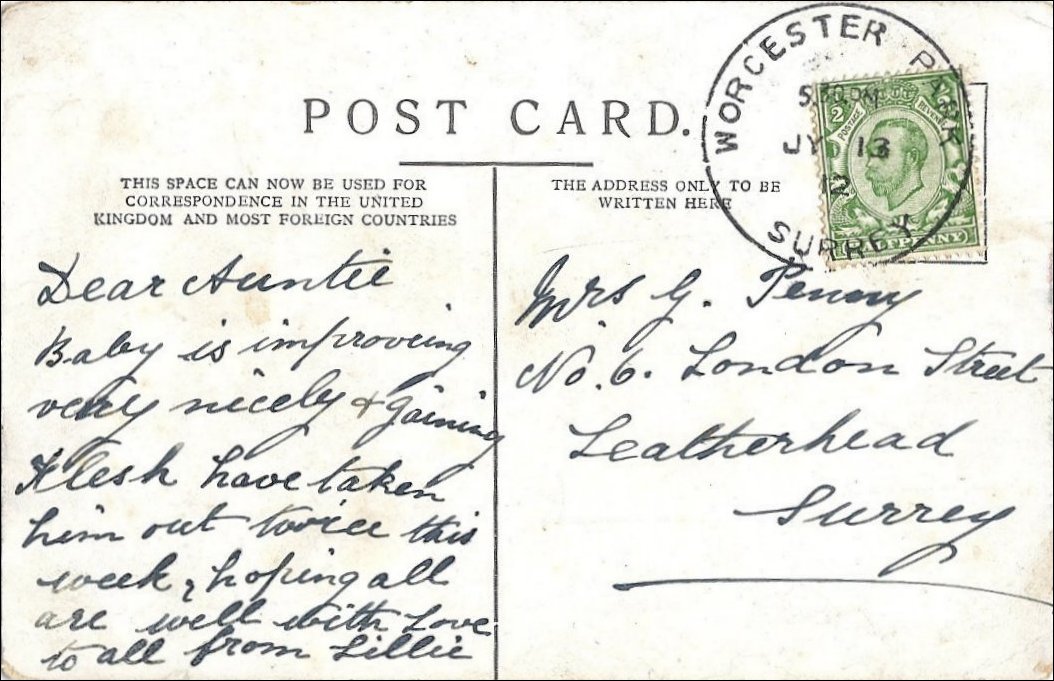 POST CARD.
THIS SPACE CAN NOW BE USED FOR
CORRESPONDENCE IN THE UNITED
KINGDOM AND MOST FOREIGN COUNTRIES
THE ADDRESS ONLY TO BE
WRITTEN HERE
WORCESTER PARK
5.30PM
JY 13
12
SURREY
POSTAGE
REVENUE
HALFPENNY
Dear Auntie
Baby is improveing
very nicely & gaining
Flesh have taken
him out twice this
week, hoping all
are well with Love
to all from Lillie
Mrs G. Penny
No. 6. London Street
Leatherhead
Surrey